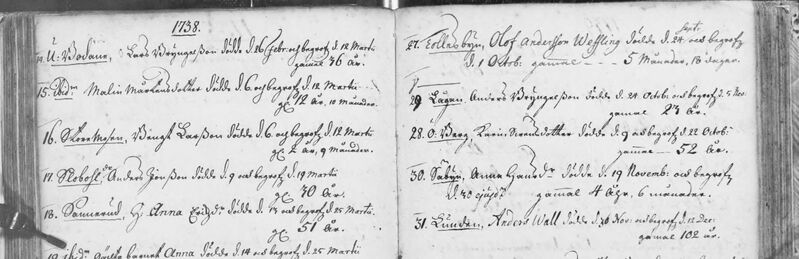 1738.
14. U: Bodane, Lars Bryngelson dödde d. 26 Febr. och begrof. d. 12 Martii
gamal 36 år.
15. Ibidm Malin Mårtensdotter dödde d. 6. och begrof. d. 12 Martii
gl. 12 År, 10 månader.
16. Skoremosen, Bengt Larsson dödde d. 6. och begrof. d. 12 Martii
gl. 2 år, 9 månader.
17. Anders Jönsson dödde d. 9 och begrof. d. 19 Martii
gl. 30 År.
18. Sannerud, H. Anna dödde d. 13 och begrof. d. 25 Martii.
gl. 51 År.
19. barnet Anna dödde d. 14 och begrof. d. 25 Martii
27. Tollesbyn, Olof Andersson Wessling dödde d. 24 Sept. och begrofz
d. 1 Octob: gamal - - - 5 Månader, 18 dagar.
29 Lagan Anders Bryngelson dödde d. 24 Octob: och begrof d. 5 Nov:
gamal 23 år.
28. Ö: Berg Karin Svensdotter dödde d. 9 och begrof d. 22 Octob:
gammal - - - 52 År.
30. Säbyn, Anna Hansdr dödde d. 19 Novemb: och begrofz
d. 30 gammal 4 Åhr, 6 månader.
31. Lunden, Anders Wall dödde d. 30 Nov: och begrof d. 12 Dec:
gamal 102 år.